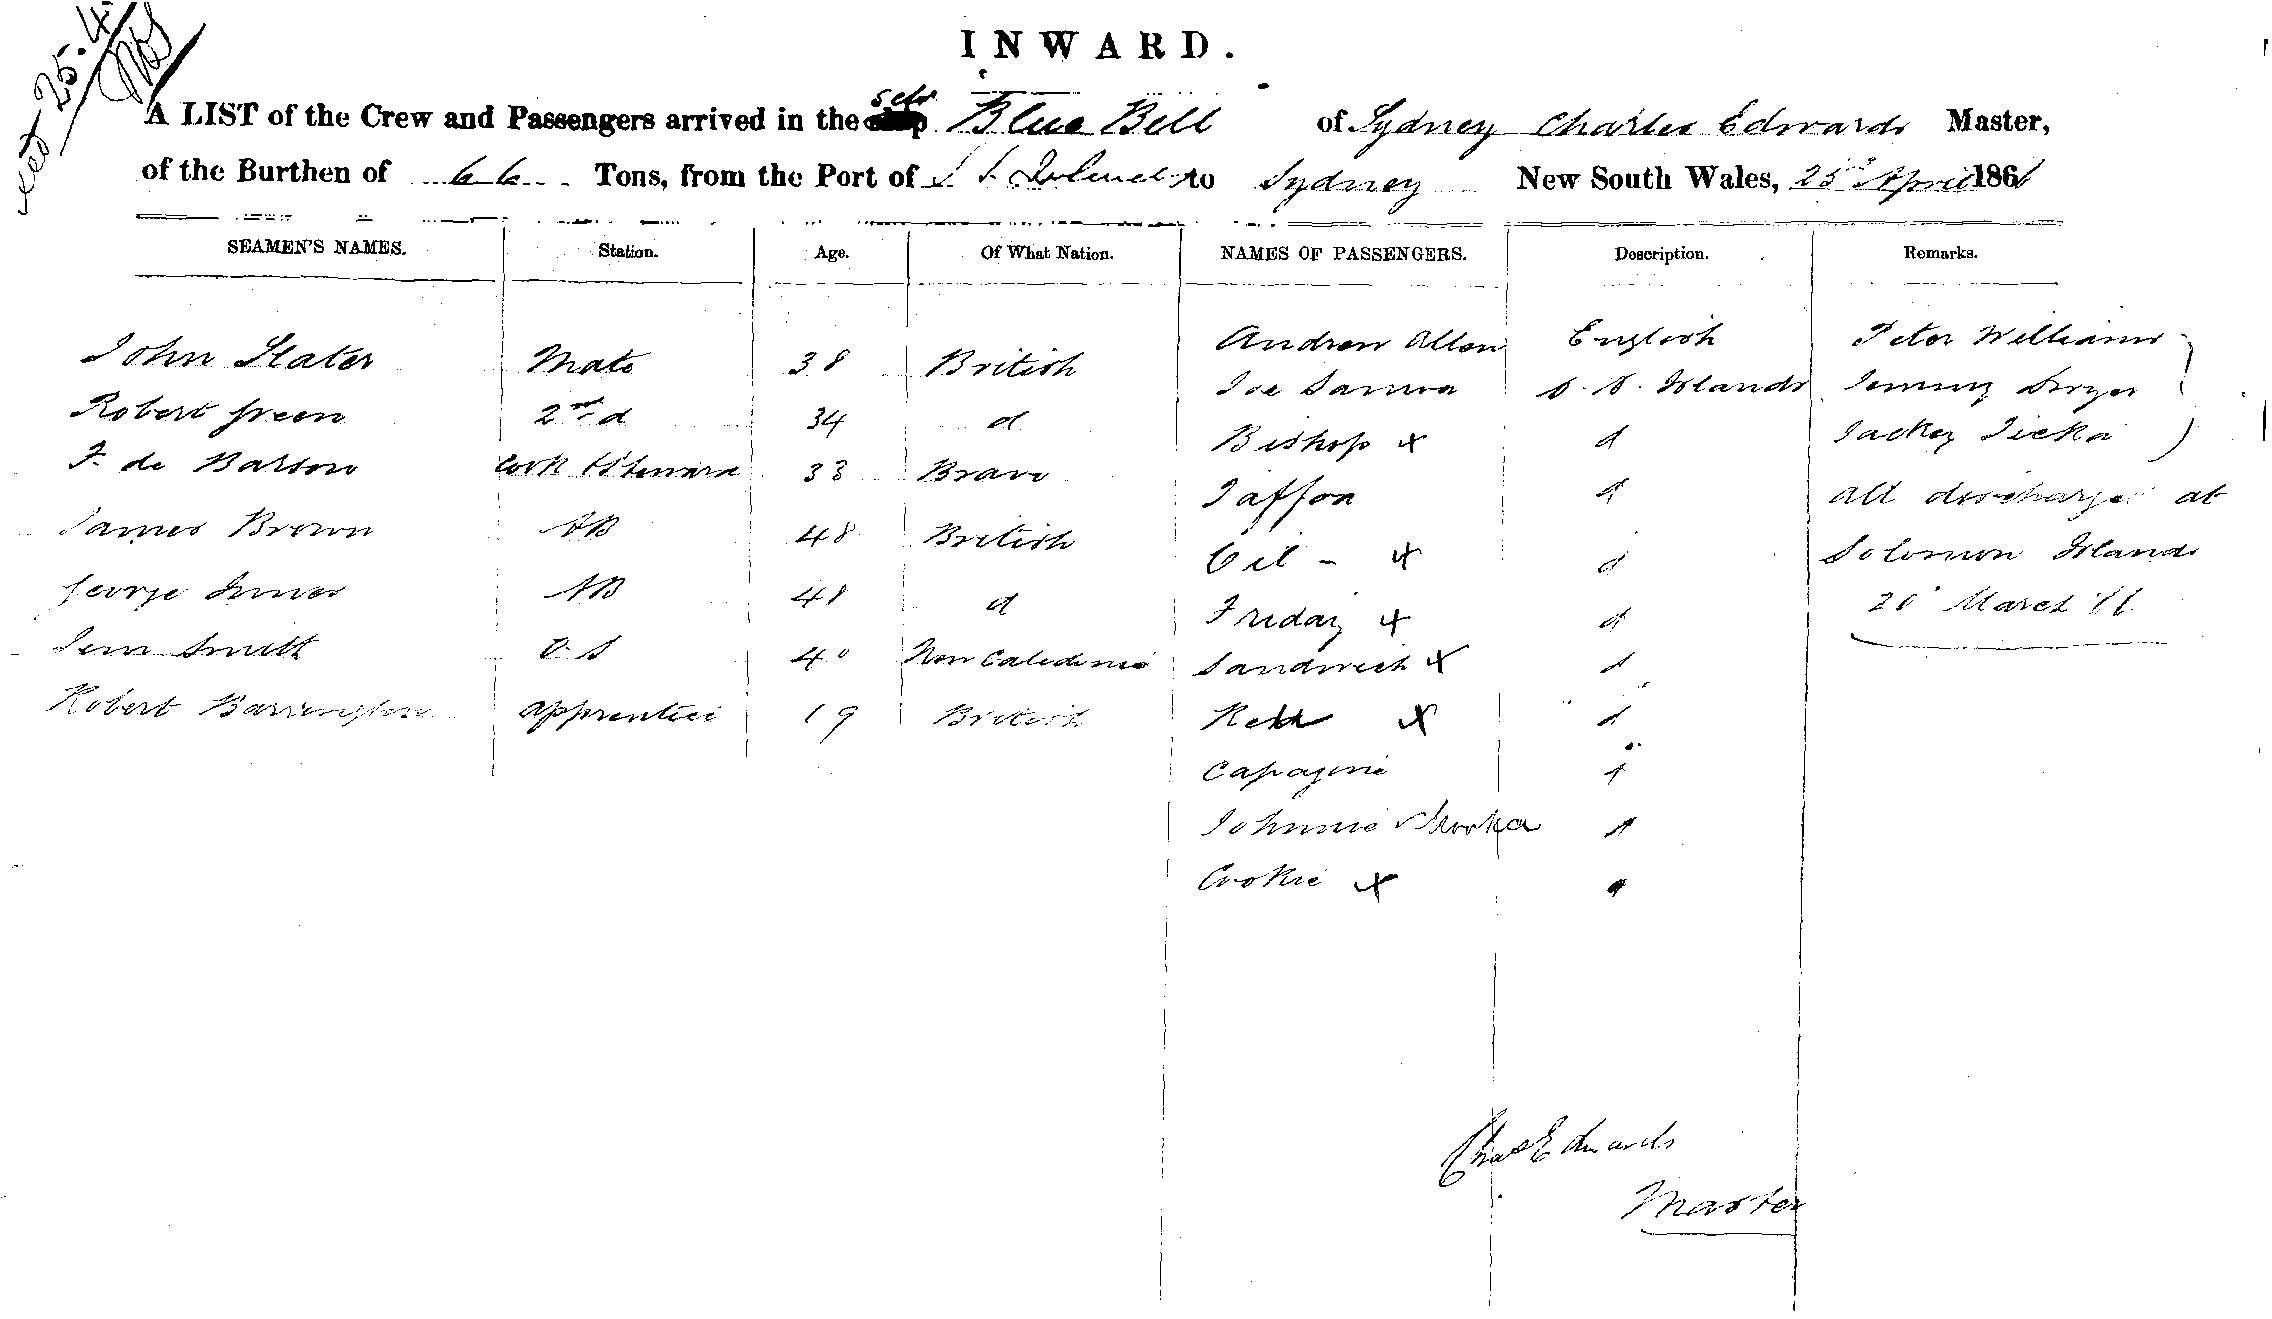 25.4
INWARD.
A LIST of the Crew and Passengers arrived in the schr Blue Bell of Sydney Charles Edwards Master,
of the Burthen of 66 Tons, from the Port of S. S. Islands to Sydney New South Wales, 25th April 1866
SEAMEN'S NAMES. Station. Age. Of What Nation. NAMES OF PASSENGERS. Description. Remarks.
John Slater Mate 38 British Andrew Allen English Peter Williams
Robert Green 2nd d 34 d Joe Samoa S. S. Islands Jemmy
F. de Cook & Steward 33 Bravo Bishop x d Jackey
James Brown AB 48 British d all discharged at
George AB 48 d Oil - x d Solomon Islands
Jem Smith O S 40 New Caledonia Friday x d 20 March 66
Robert Barrington apprentice 19 British Sandwich x d
x d
d
Johnnie d
Cookie x d
Chas Edwards
Master